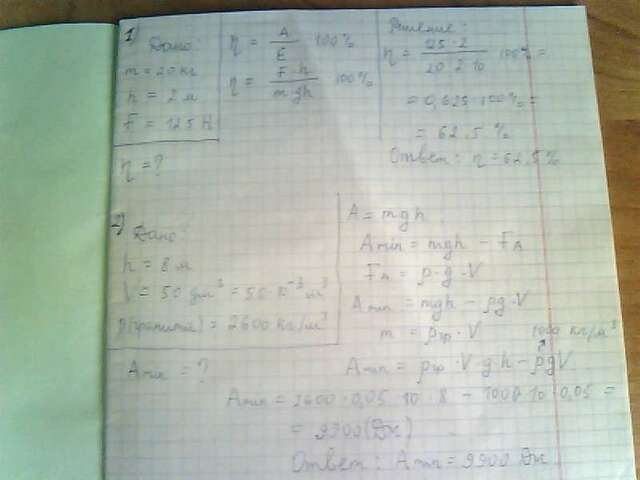 1)
Дано:
m = 20 кг
h = 2 м
F = 125 Н
η = ?
η = A/E 100%
η = F·h/mgh 100%
Решение:
η = 125·2/20·2·10 100% =
= 0,625·100% =
= 62,5 %
Ответ: η = 62,5%
2)
Дано:
h = 8 м
V = 50 дм³ = 50·10⁻³ м³
ρ(гранита) = 2600 кг/м³
Amin = ?
A = mgh
Amin = mgh - FA
FA = ρ·g·V
Amin = mgh - ρg·V
m = ρгр·V
1000 кг/м³
Amin = ρгр·V·g·h - ρgV
Amin = 2600·0,05·10·8 - 1000·10·0,05 =
= 9900 (Дж)
Ответ: Amin = 9900 Дж